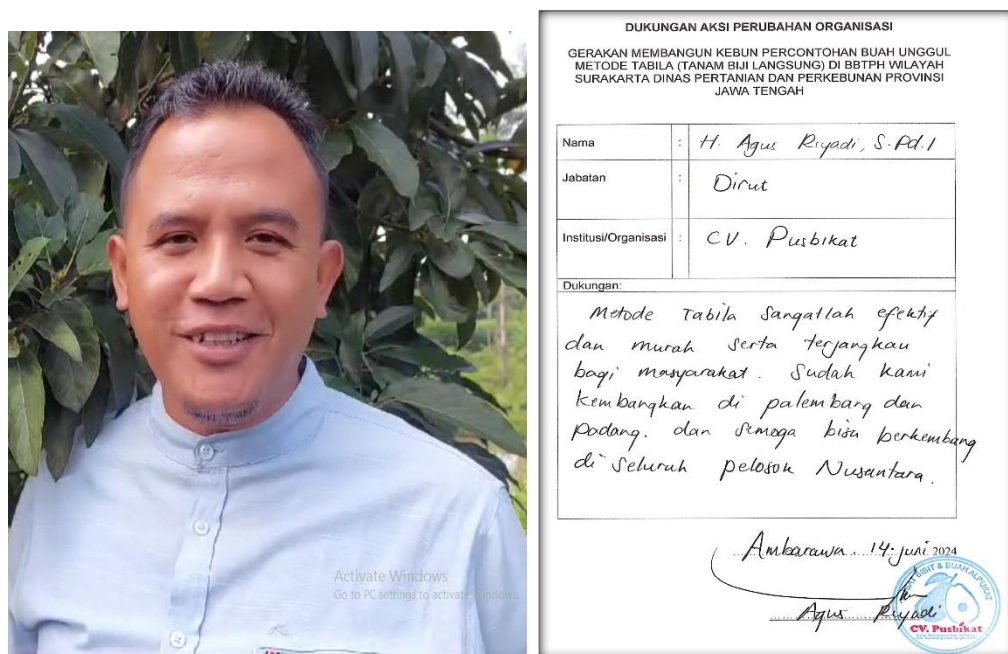 Activate Windows
Go to PC settings to activate Windows.
DUKUNGAN AKSI PERUBAHAN ORGANISASI
GERAKAN MEMBANGUN KEBUN PERCONTOHAN BUAH UNGGUL
METODE TABILA (TANAM BIJI LANGSUNG) DI BBTPH WILAYAH
SURAKARTA DINAS PERTANIAN DAN PERKEBUNAN PROVINSI
JAWA TENGAH
Nama : H. Agus Riyadi, S.Pd.I
Jabatan : Dirut
Institusi/Organisasi : CV. Pusbikat
Dukungan:
Metode Tabila Sangatlah efektif
dan murah serta terjangkau
bagi masyarakat. Sudah kami
kembangkan di palembang dan
Padang. dan semoga bisa berkembang
di Seluruh pelosok Nusantara.
Ambarawa, 14 Juni 2024
BIBIT & BUAH ALPUKAT
Agus Riyadi
CV. Pusbikat